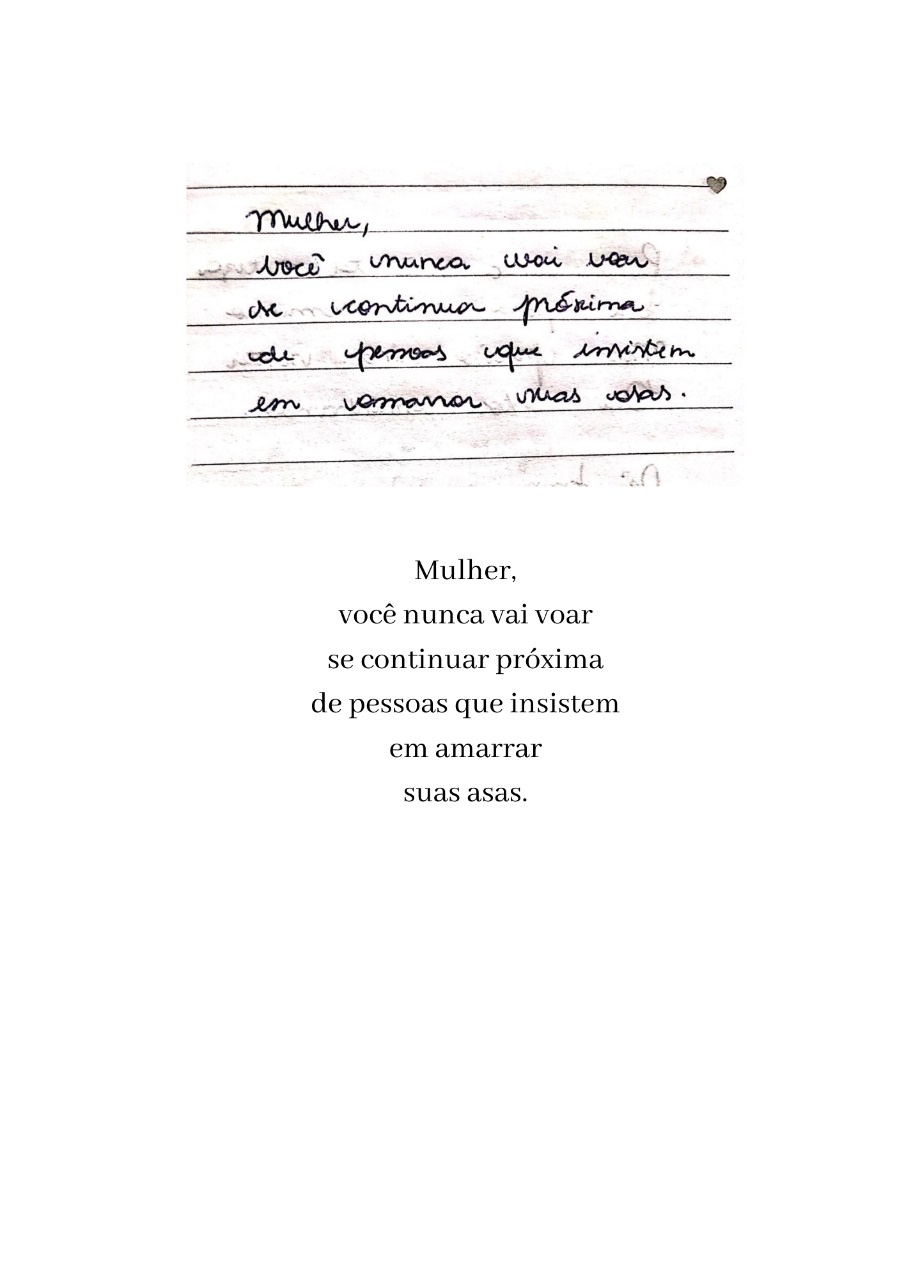 Mulher,
você nunca vai voar
se continuar próxima
de pessoas que insistem
em amarrar suas asas.
Mulher,
você nunca vai voar
se continuar próxima
de pessoas que insistem
em amarrar
suas asas.